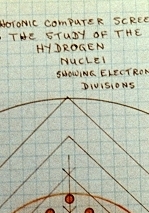 HOTONIC COMPUTER SCREE
THE STUDY OF THE
HYDROGEN
NUCLEI
SHOWING ELECTRON
DIVISIONS